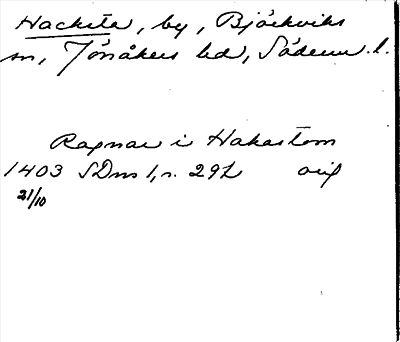 Hacksta, by, Björkviks
sn, Jönåkers hd, Söderm. l.
Ragnar i Hakastom
1403 SDns 1, s. 292 orig
21/10